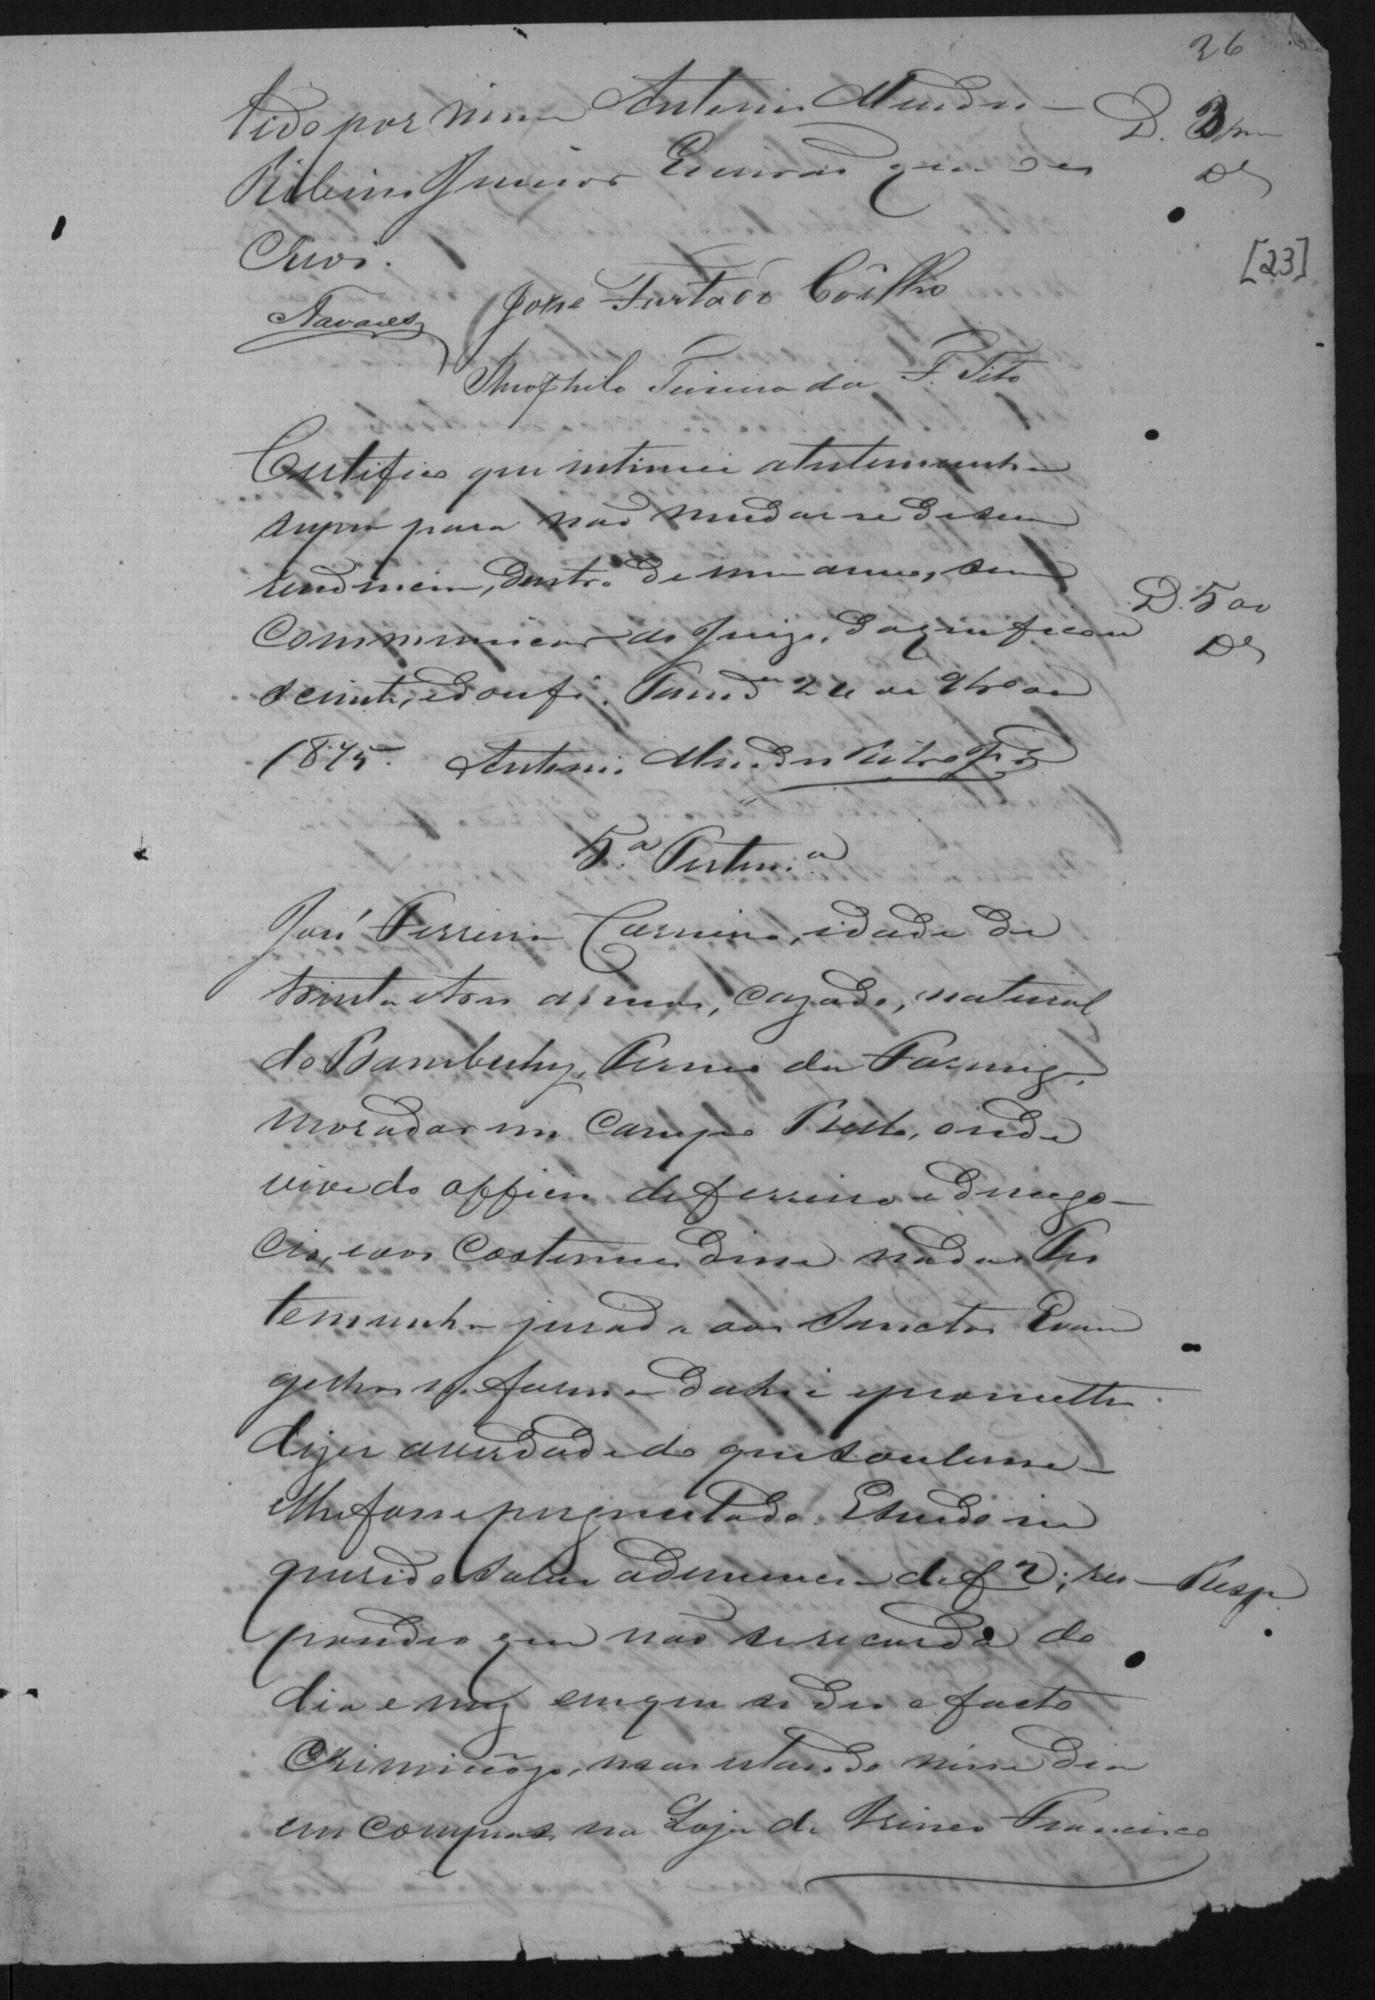 26
tido por mim Antonio Mendes
Ribeiro Junior Escrivão que es
crevi.
D.
[23]
Tavares José Furtado Coêlho
Theophilo Teixeira da F. Tito
Certifico que intimei atestemunha
supra para não mudar se desua
residencia, dentro de um anno, sem
communicar ao Juizo, do que ficou
sciente, e dou fé. 24 de 9bro de
D. 500
1875. Antonio Mendes Ribro Jor
5.a Testem.a
José Ferreira Carneiro, idade de
trinta e tres annos, cazado, natural
do Bambuhy, Termo da Formiga,
morador no Campo Bello, onde
vive do officio de ferreiro e de nego
cio, e aos costumes disse nada. Tes
temunha jurada aos Sanctos Evan
gelhos na forma da lei e prometteo
dizer averdade do que soubesse e
lhe fosse perguntado. E sendo in
querido sobre adenuncia de f 2; res
Resp.
pondeo que não se recorda do
dia e mez em que se deo o facto
criminôzo, mas estando nesse dia
em compras na Loja de Irineo Francisco